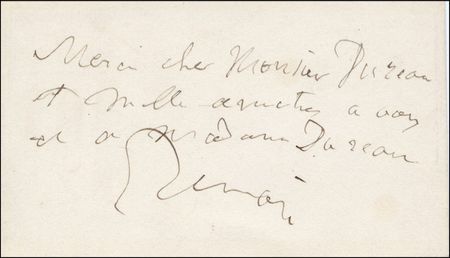 Merci cher Monsieur Dureau
et mille amitiés a vous
et a Madame Dureau
Renoir